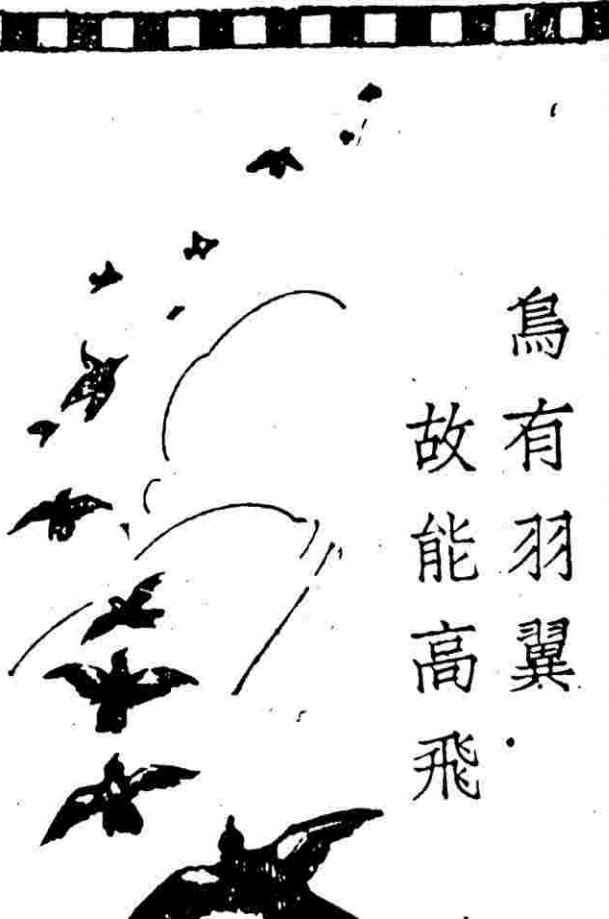 鳥有羽翼
故能高飛